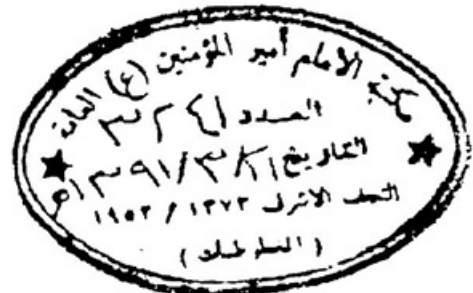 مكتبة الامام أمير المؤمنين (ع) العامة
العدد ٣٢٤١
التاريخ ١٣٩١/٣/١١ه
النجف الاشرف ١٣٧٣ / ١٩٥٣
( المخطوطات )